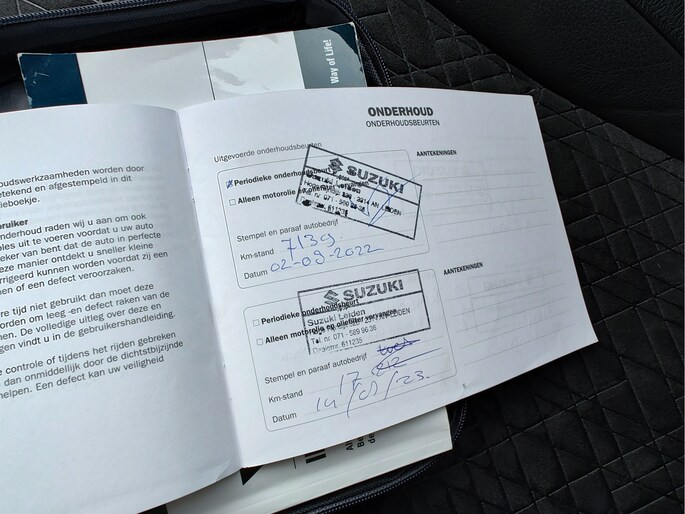 Way of Life!
oudswerkzaamheden worden door
etekend en afgestempeld in dit
ieboekje.
bruiker
nderhoud raden wij u aan om ook
oles uit te voeren voordat u uw auto
eker van bent dat de auto in perfecte
eze manier ontdekt u sneller kleine
rrigeerd kunnen worden voordat zij een
en of een defect veroorzaken.
re tijd niet gebruikt dan moet deze
orden om leeg -en defect raken van de
nen. De volledige uitleg over deze en
ngen vindt u in de gebruikershandleiding.
e controle of tijdens het rijden gebreken
dan onmiddellijk door de dichtstbijzijnde
helpen. Een defect kan uw veiligheid
ONDERHOUD
ONDERHOUDSBEURTEN
Uitgevoerde onderhoudsbeurten
AANTEKENINGEN
Periodieke onderhoudsbeurt
Alleen motorolie
SUZUKI
Stempel en paraaf autobedrijf
Km-stand 7139
Datum 02-09-2022
AANTEKENINGEN
SUZUKI
Periodieke onderhoudsbeurt
Suzuki Leiden
Alleen motorolie en oliefilter vervangen
LEIDEN
Tel. nr. 071 - 589 96 36
611235
Stempel en paraaf autobedrijf
Km-stand
Datum